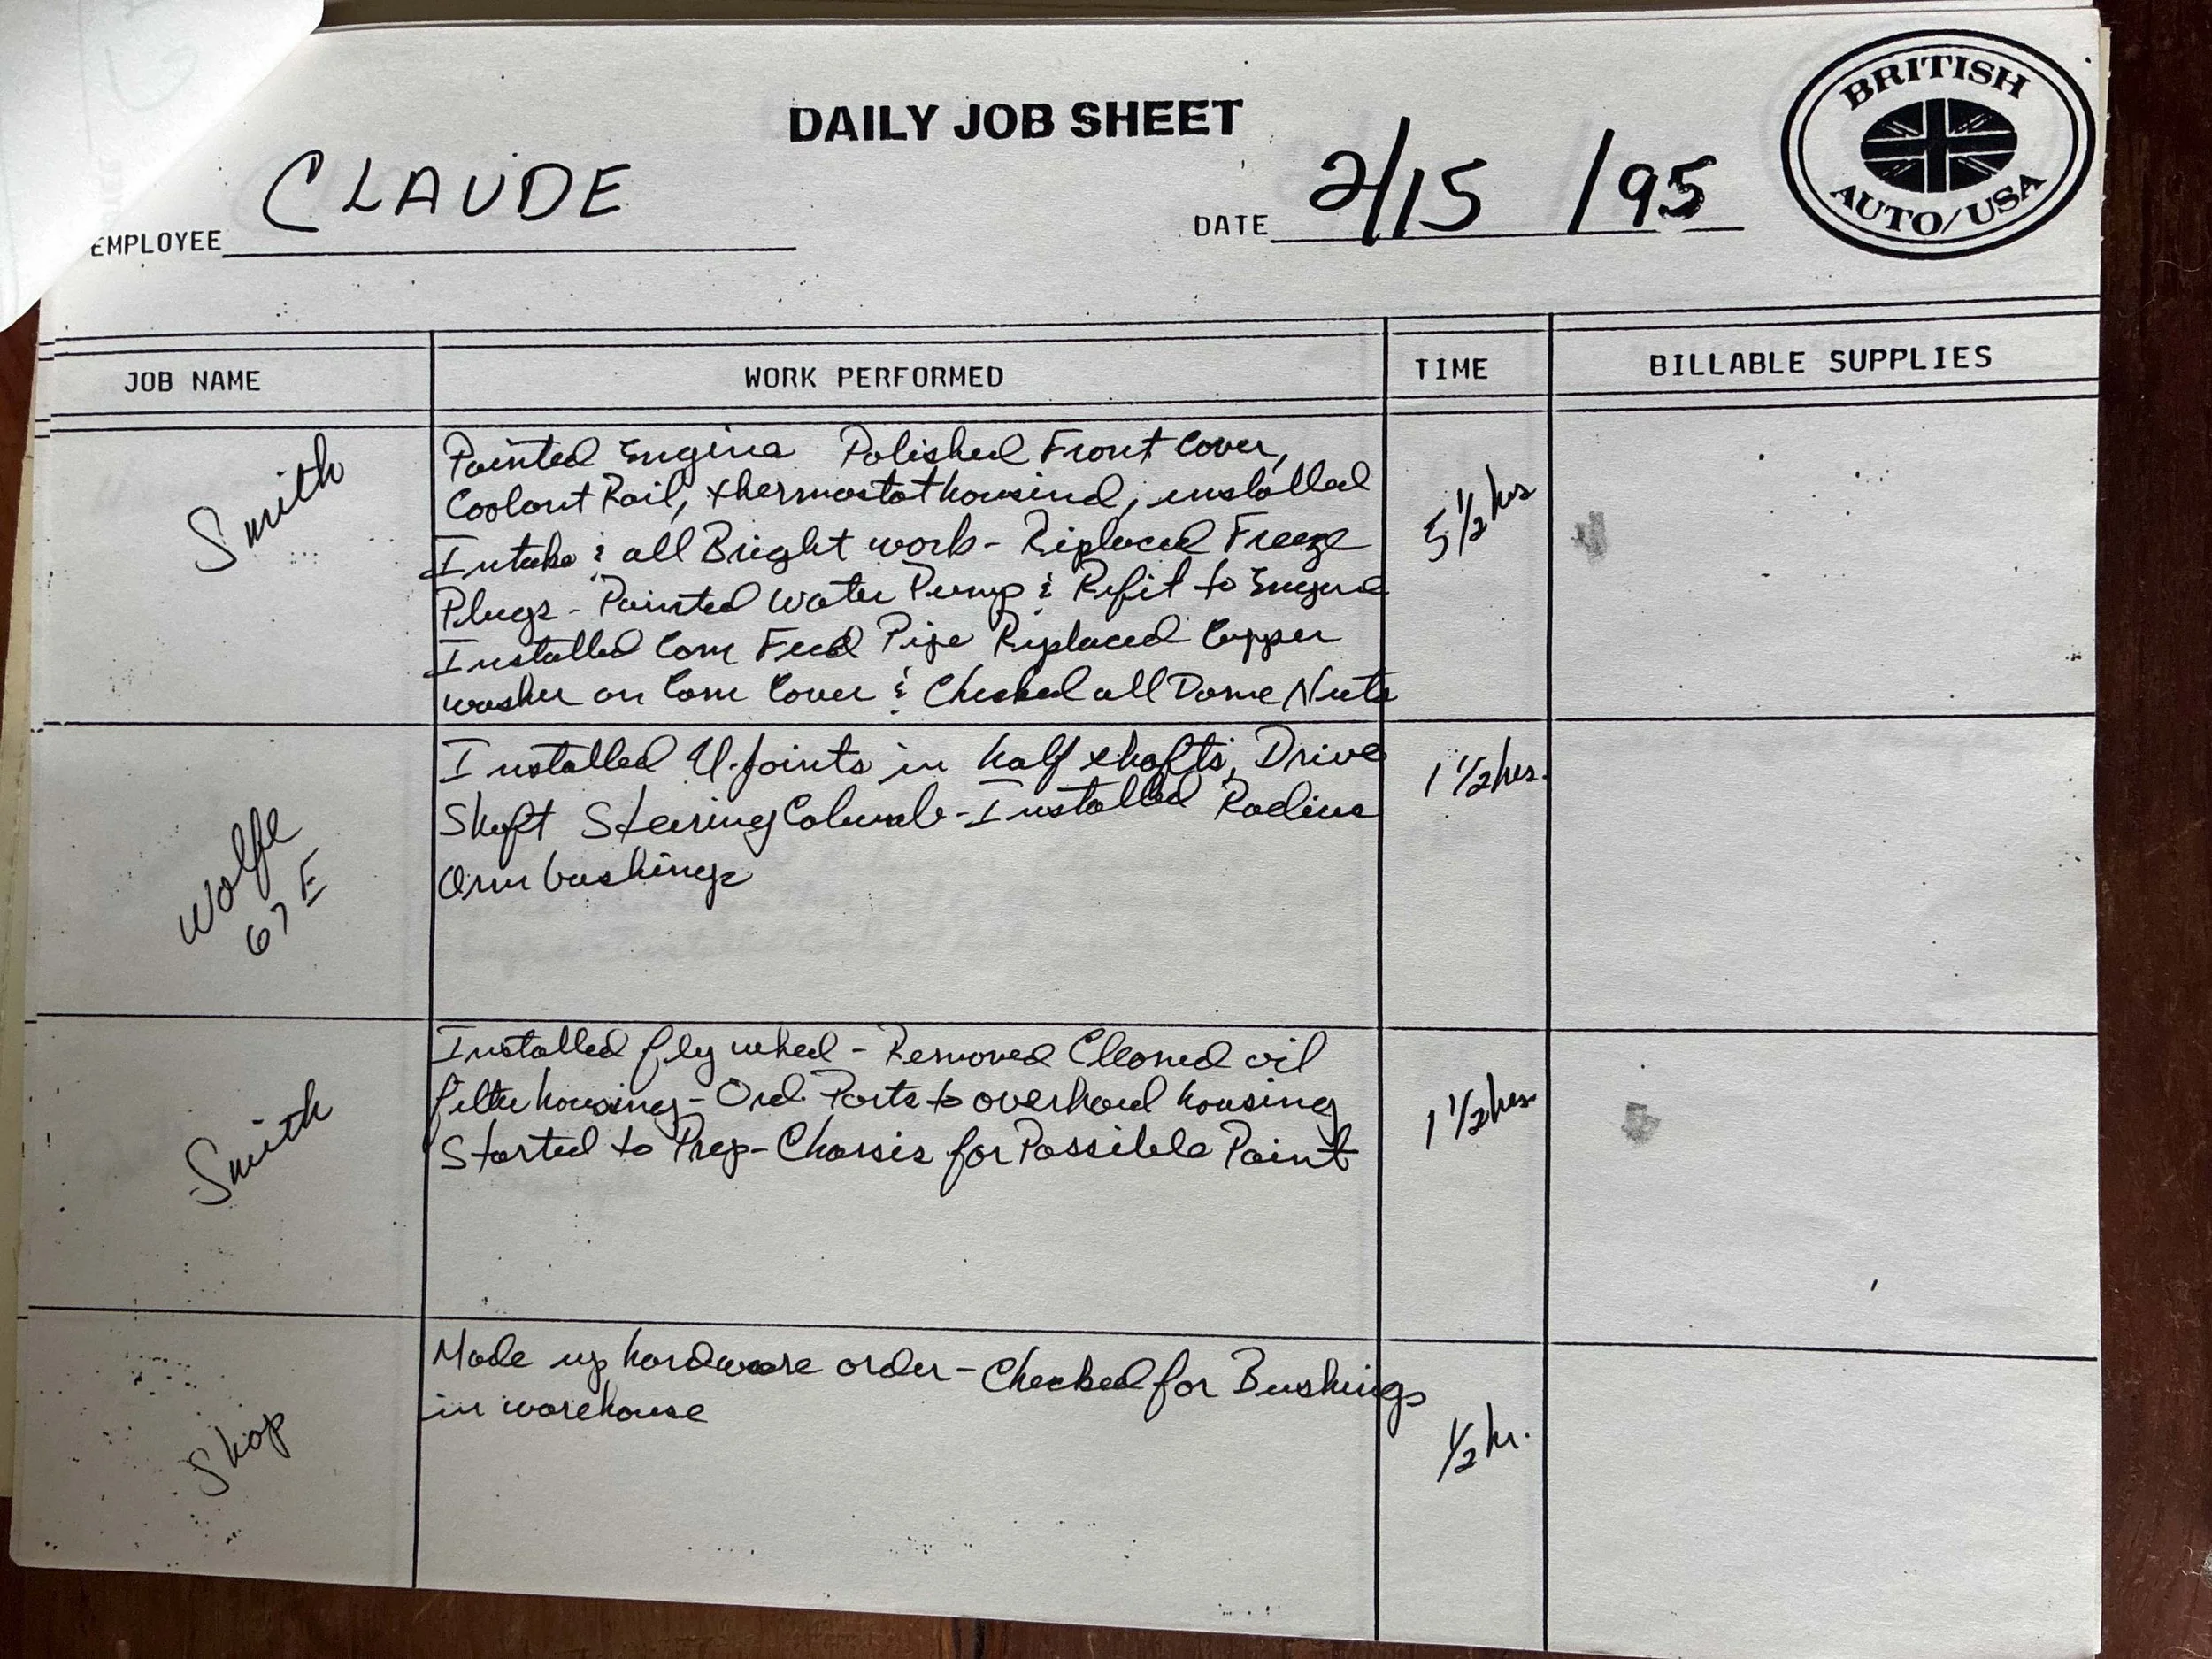 DAILY JOB SHEET
BRITISH
AUTO/USA
EMPLOYEE CLAUDE
DATE 2/15/95
JOB NAME WORK PERFORMED TIME BILLABLE SUPPLIES
Smith
Painted Engine Polished Front Cover,
Coolant Rail, thermostat housind, installed
Intake & all Bright work - Replaced Freeze
Plugs - Painted Water Pump & Refit to Engine
Installed Cam Feed Pipe Replaced Copper
washer on Cam Cover & Checked all Dome Nuts
5 1/2 hrs
Wolfe
67 E
Installed U-joints in half shafts, Drive
Shaft Steering Columb - Installed Radius
Arm bushings
1 1/2 hrs.
Smith
Installed fly wheel - Removed Cleaned oil
filter housing - Ord. Parts to overhaul housing
Started to Prep - Chassis for Possible Paint
1 1/2 hrs.
Shop
Made up hardware order - Checked for Bushings
in warehouse
1/2 hr.